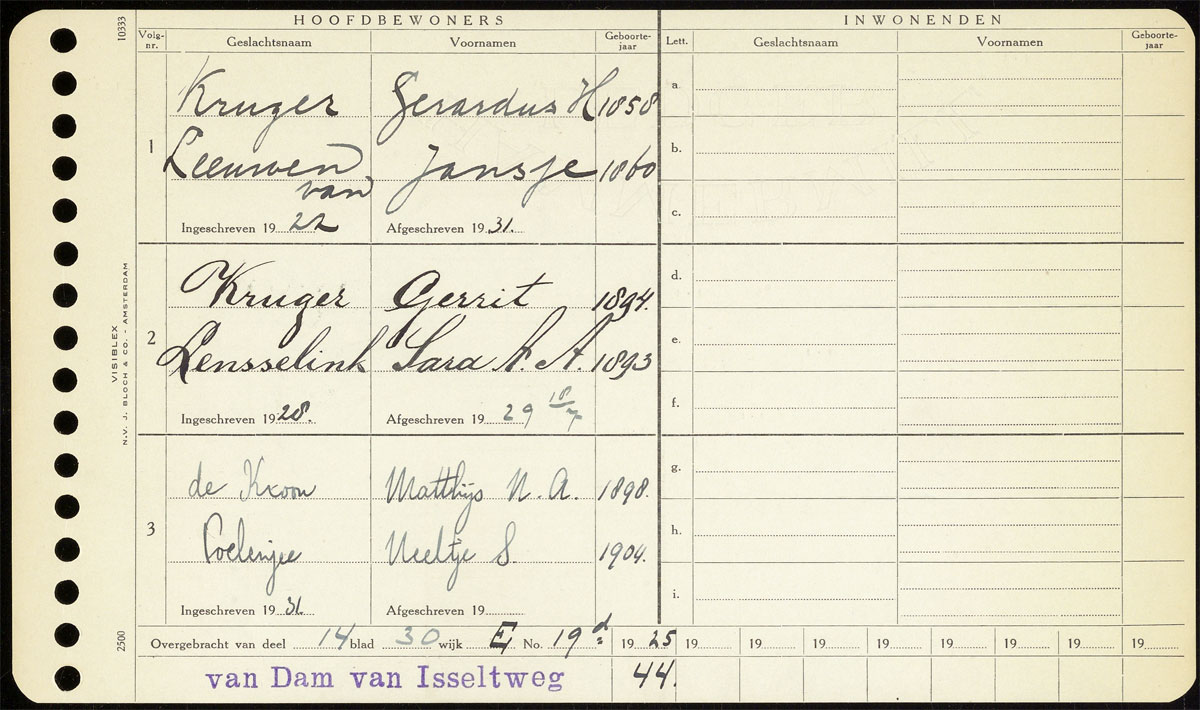 HOOFDBEWONERS INWONENDEN
Volg-nr. Geslachtsnaam Voornamen Geboorte-jaar Lett. Geslachtsnaam Voornamen Geboorte-jaar
1 Kruger Gerardus H 1858 a.
Leeuwen van Jansje 1860 b.
Ingeschreven 1922 Afgeschreven 1931. c.
2 Kruger Gerrit 1894. d.
Lensselink Sara A. A. 1893 e.
Ingeschreven 1928. Afgeschreven 19 29 18/7 f.
3 de Kroon Matthijs N. A. 1898. g.
Poelenjee Neeltje S 1904. h.
Ingeschreven 19 31. Afgeschreven 19 i.
Overgebracht van deel 14 blad 30 wijk E No. 19d 19 25 19 19 19 19 19 19 19
van Dam van Isseltweg 44.
10333
VISIBLEX
N.V. J. BLOCH & CO. - AMSTERDAM
2500